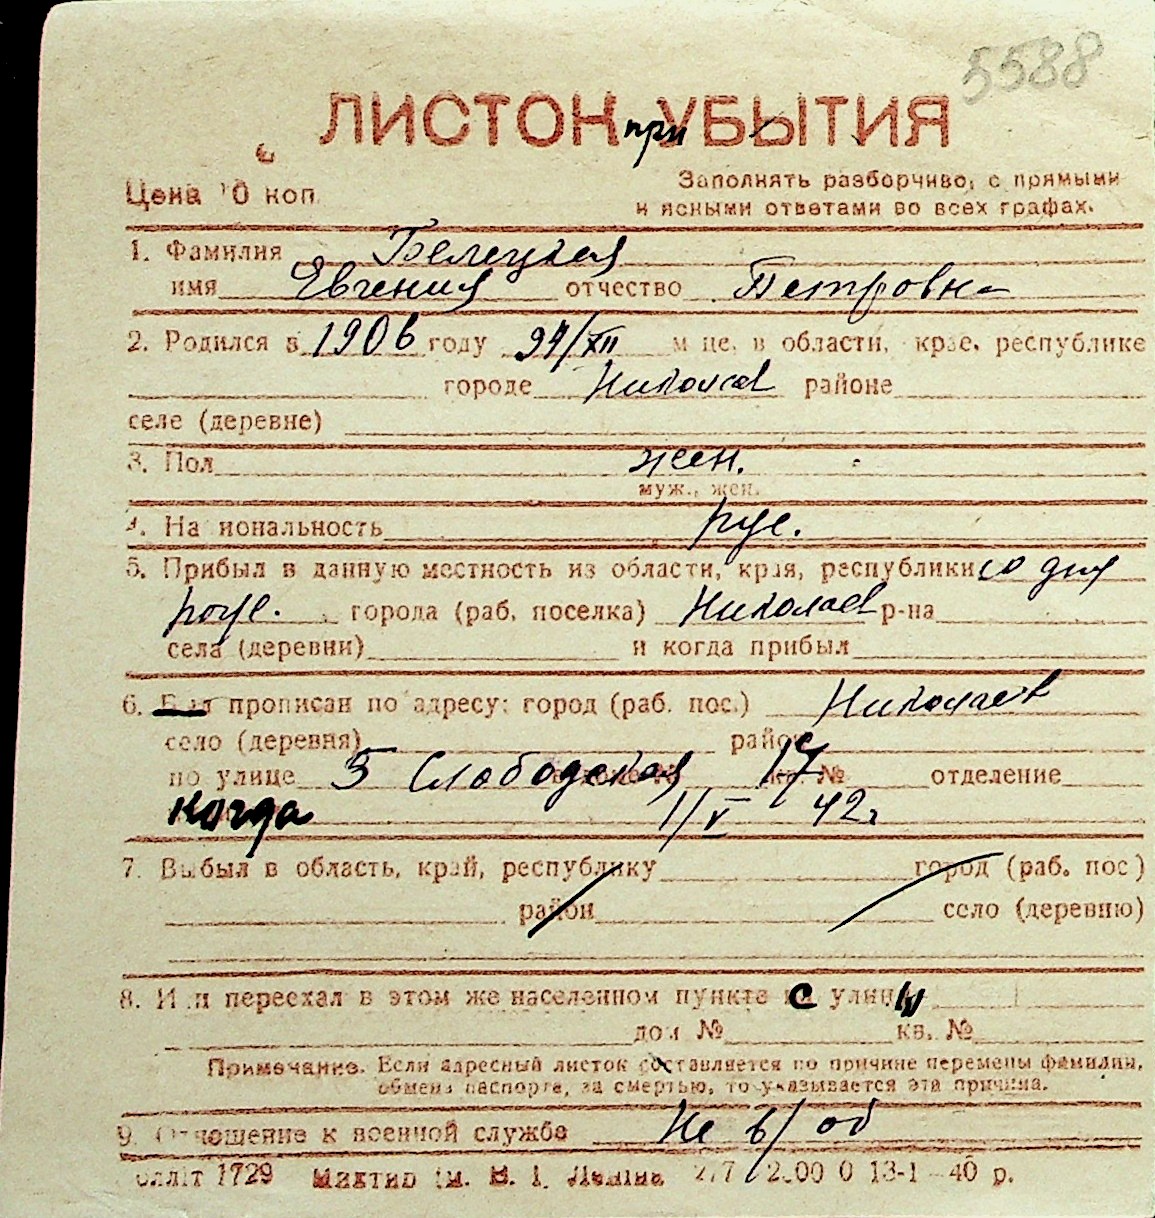 5588
ЛИСТОК при УБЫТИЯ
Цена 10 коп.
Заполнять разборчиво, с прямыми
и ясными ответами во всех графах.
1. Фамилия Белецкая
имя Евгения отчество Петровн
2. Родился в 1906 году 24/XII м-це, в области, крае, республике
городе Николаев районе
селе (деревне)
3. Пол жен.
муж., жен.
4. Национальность рус.
5. Прибыл в данную местность из области, края, республики со дня
рожд. города (раб. поселка) Николаев р-на
села (деревни) и когда прибыл
6. Был прописан по адресу: город (раб. пос.) Николаев
село (деревня) район
по улице 5 Слободская 17 кв. № отделение
когда 1/V 42г
7. Выбыл в область, край, республику город (раб. пос)
район село (деревню)
8. Или переехал в этом же населенном пункте с улицы
дом № кв. №
Примечание. Если адресный листок составляется по причине перемены фамилии,
обмена паспорта, за смертью, то указывается эта причина.
9. Отношение к военной службе Не в/об
олліт 1729 Миктип ім. В. І. Леніна 2.00 0 13-1 - 40 р.